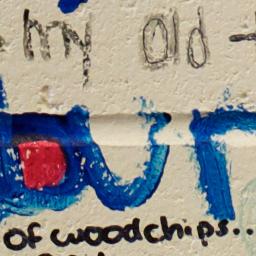 my old
our
of woodchips..